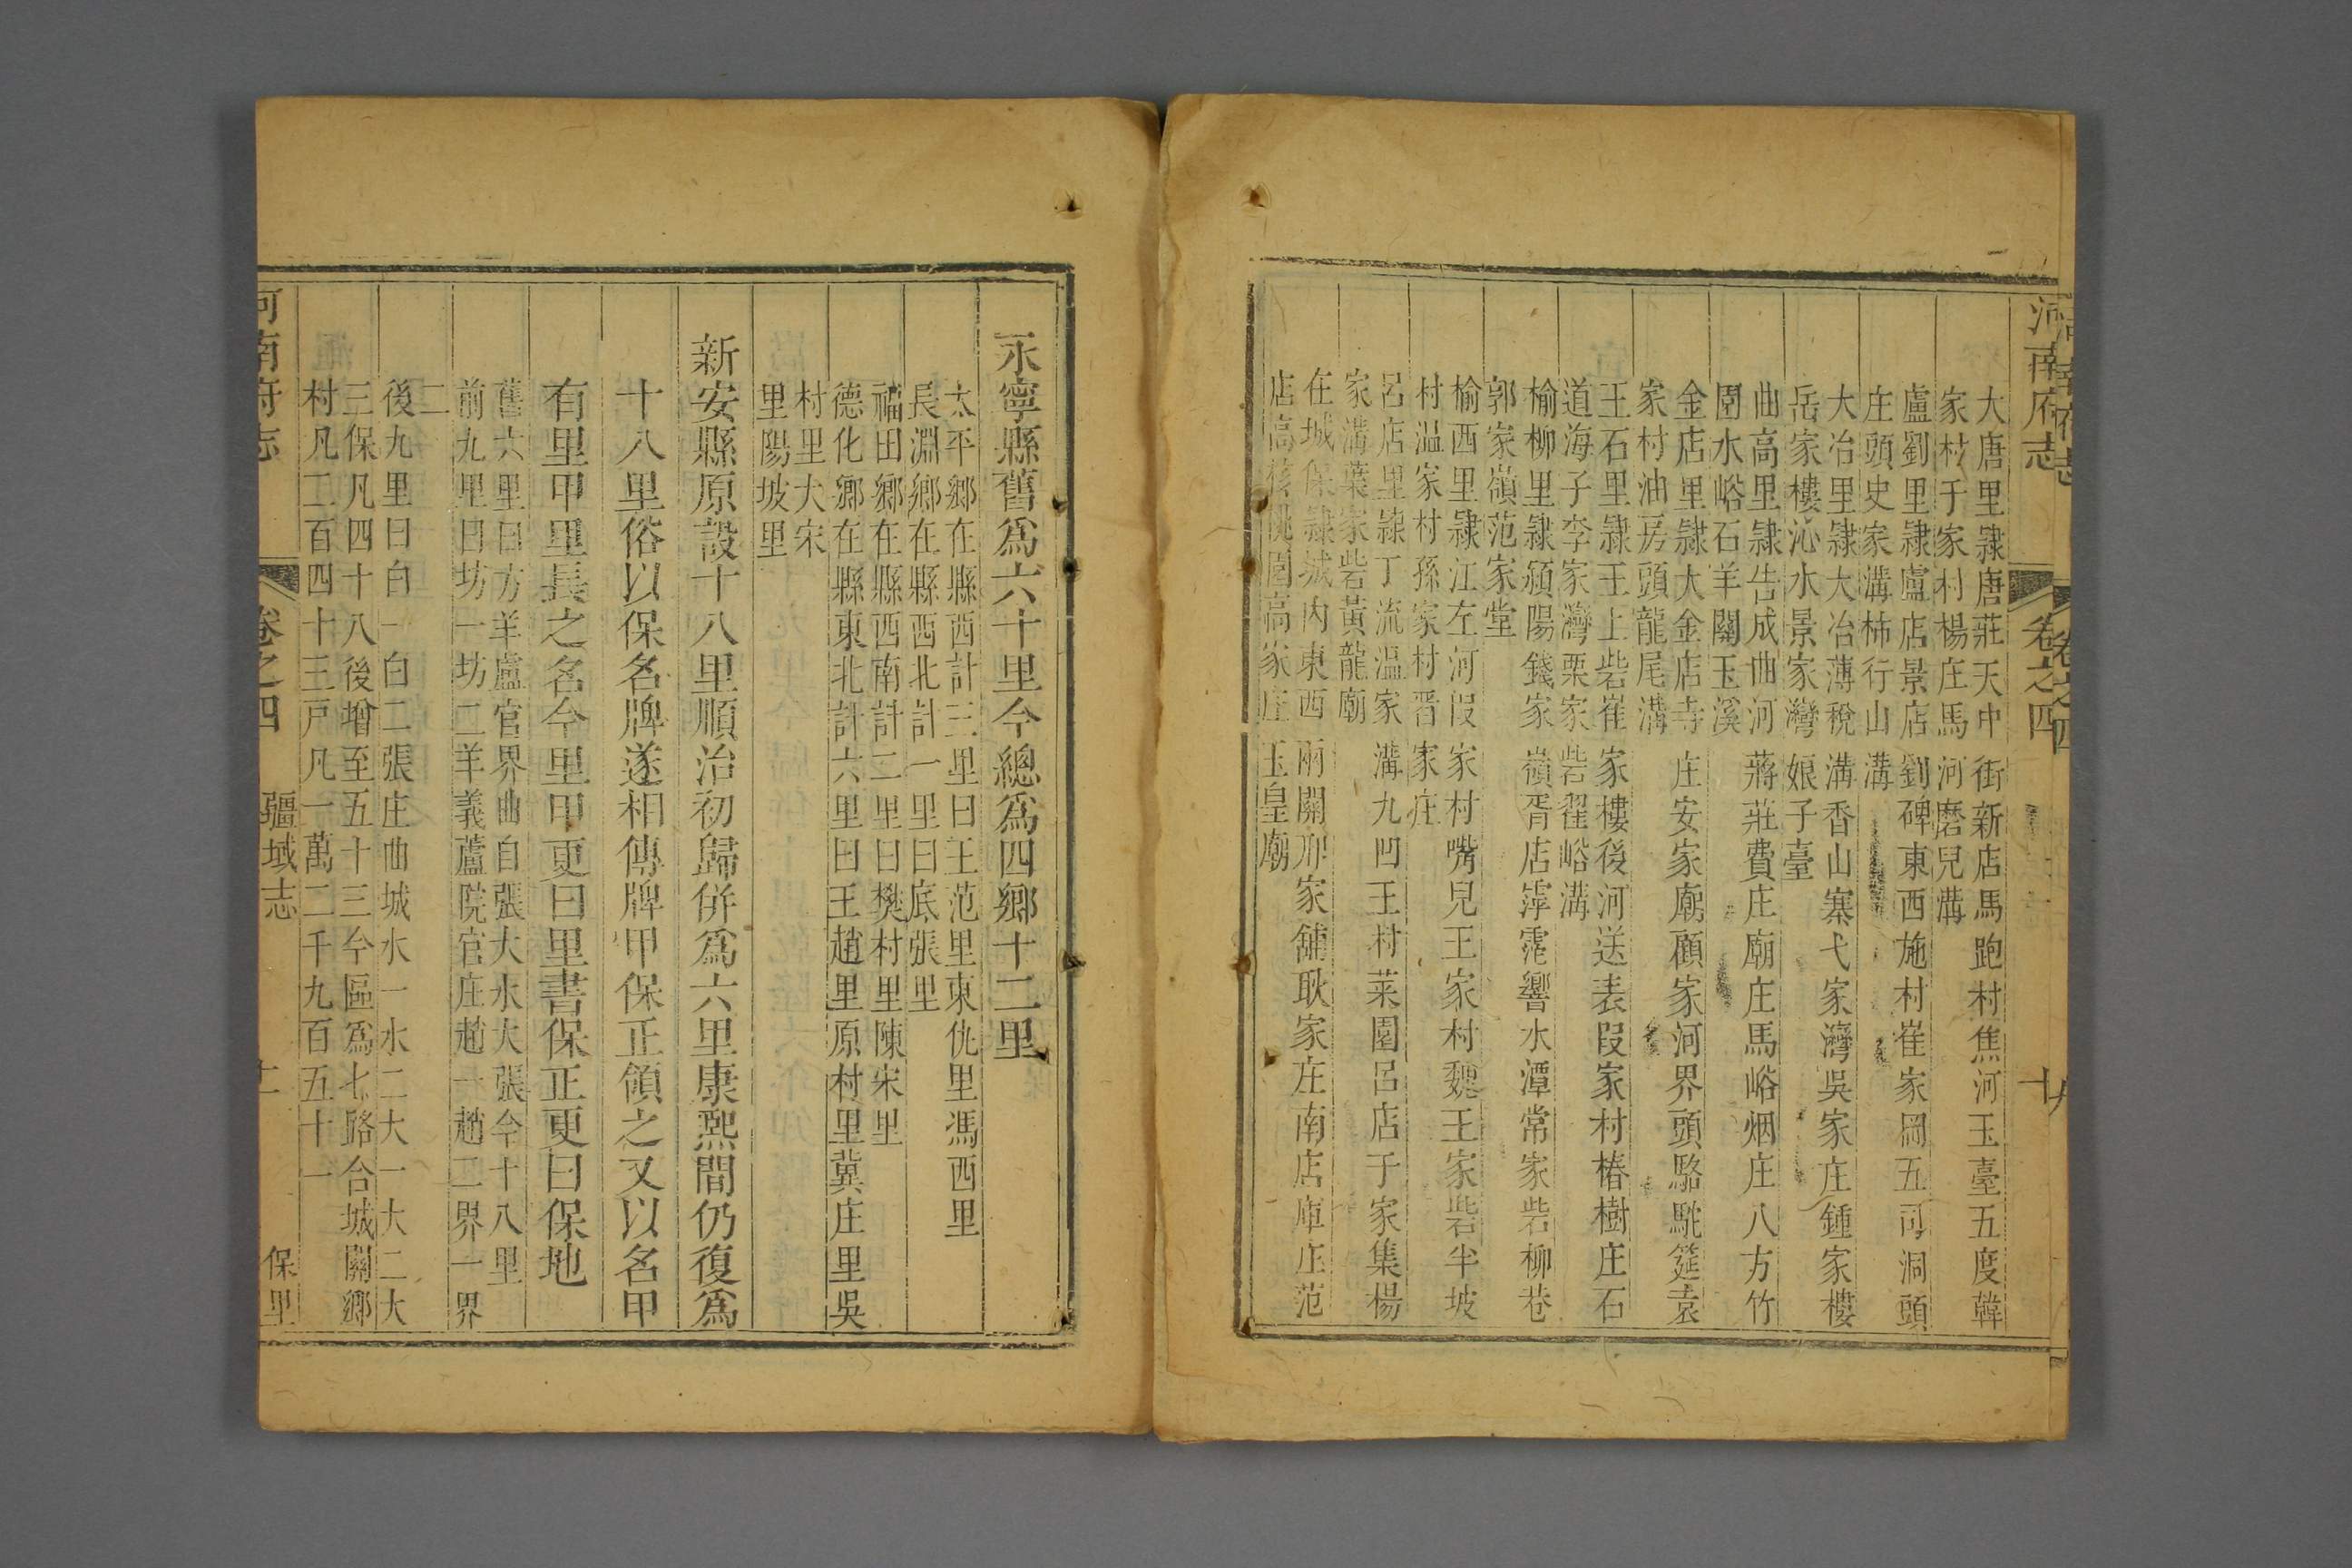 河南府志
卷之四
大唐里隷唐莊天中街新店馬跑村焦河玉臺五度韓
家村于家村楊庄馬河磨兒溝
盧劉里隷盧店景店劉碑東西施村崔家岡五司洞頭
庄頭史家溝柿行山溝
大冶里隷大冶薄稅溝香山寨弋家灣吳家庄鍾家樓
岳家樓沁水景家灣娘子臺
曲高里隷告成曲河蔣莊費庄廟庄馬峪烟庄八方竹
園水峪石羊關玉溪
金店里隷大金店寺庄安家廟顧家河界頭駱駝筵袁
家村油房頭龍尾溝
王石里隷王上砦崔家樓後河送表叚家村椿樹庄石
道海子李家灣栗家砦翟峪溝
榆柳里隷潁陽錢家嶺胥店滹霮響水潭常家砦柳巷
郭家嶺范家堂
榆西里隷江左河叚家村嘴兒王家村魏王家砦半坡
村溫家村孫家村晋家庄
呂店里隷丁流溫家溝九凹王村菜園呂店于家集楊
家溝葉家砦黃龍廟
在城保隷城內東西兩關邢家舖耿家庄南店庫庄范
店高孩桃園高家庄玉皇廟
永寧縣舊為六十里今總為四鄉十二里
太平鄉在縣西計三里曰王范里東仇里馮西里
長淵鄉在縣西北計一里曰底張里
福田鄉在縣西南計二里曰樊村里陳宋里
德化鄉在縣東北計六里曰王趙里原村里冀庄里吳
村里大宋
里陽坡里
新安縣原設十八里順治初歸併為六里康熙間仍復為
十八里俗以保名牌遂相傳牌甲保正領之又以名甲
有里甲里長之名今里甲更曰里書保正更曰保地
舊六里曰方羊盧官界曲白張大水大張今十八里
前九里曰坊一坊二羊義蘆院官庄趙一趙二界一界
二
後九里曰白一白二張庄曲城水一水二大一大二大
三保凡四十八後增至五十三今區為七路合城關鄉
村凡二百四十三戸凡一萬二千九百五十一
河南府志
卷之四
疆域志
保里